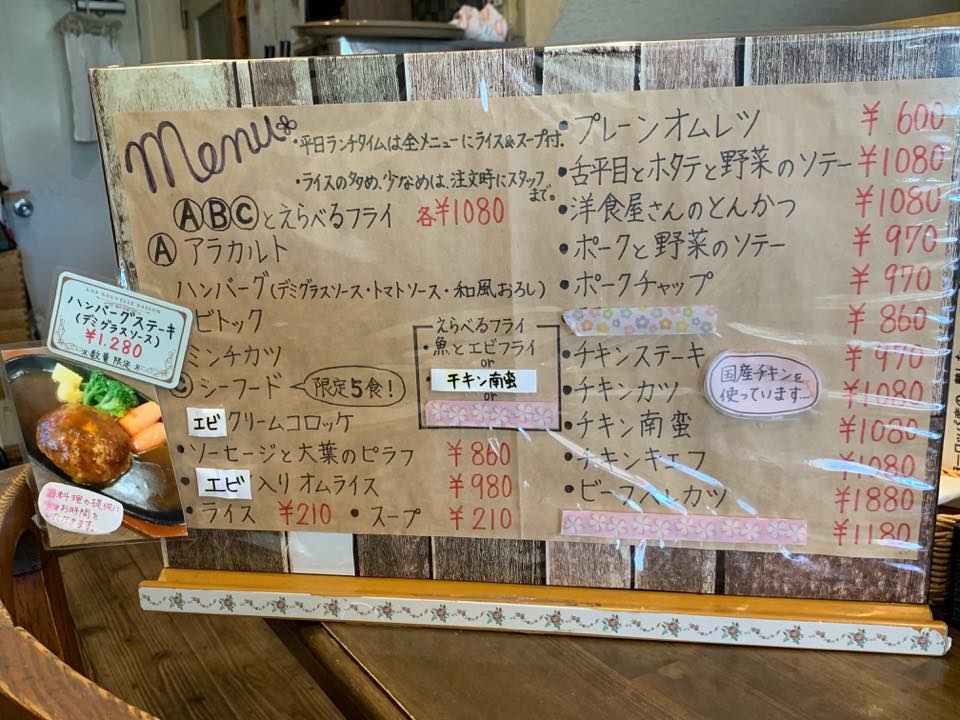 Menu
・平日ランチタイムは全メニューにライス&スープ付.
・ライスの多め、少なめは、注文時にスタッフ
まで。
ⒶⒷⒸとえらべるフライ 各¥1080
Ⓐ アラカルト
ハンバーグ(デミグラスソース・トマトソース・和風おろし)
ビトック
ミンチカツ
Ⓒ シーフード 限定5食!
エビ クリームコロッケ
・ソーセージと大葉のピラフ ¥860
エビ 入りオムライス ¥980
・ライス ¥210 ・スープ ¥210
えらべるフライ
・魚とエビフライ
or
・チキン南蛮
or
・プレーンオムレツ ¥600
・舌平目とホタテと野菜のソテー ¥1080
・洋食屋さんのとんかつ ¥1080
・ポークと野菜のソテー ¥970
・ポークチャップ ¥970
¥860
・チキンステーキ ¥970
・チキンカツ ¥1080
・チキン南蛮 ¥1080
・チキンキエフ ¥1080
・ビーフヘレカツ ¥1880
¥1180
国産チキンを
使っています…
UNE NOUVELLE SAISON
ハンバーグステーキ
(デミグラスソース)
¥1.280
×数量限定×
料理の提供に
お時間を
いただきます。